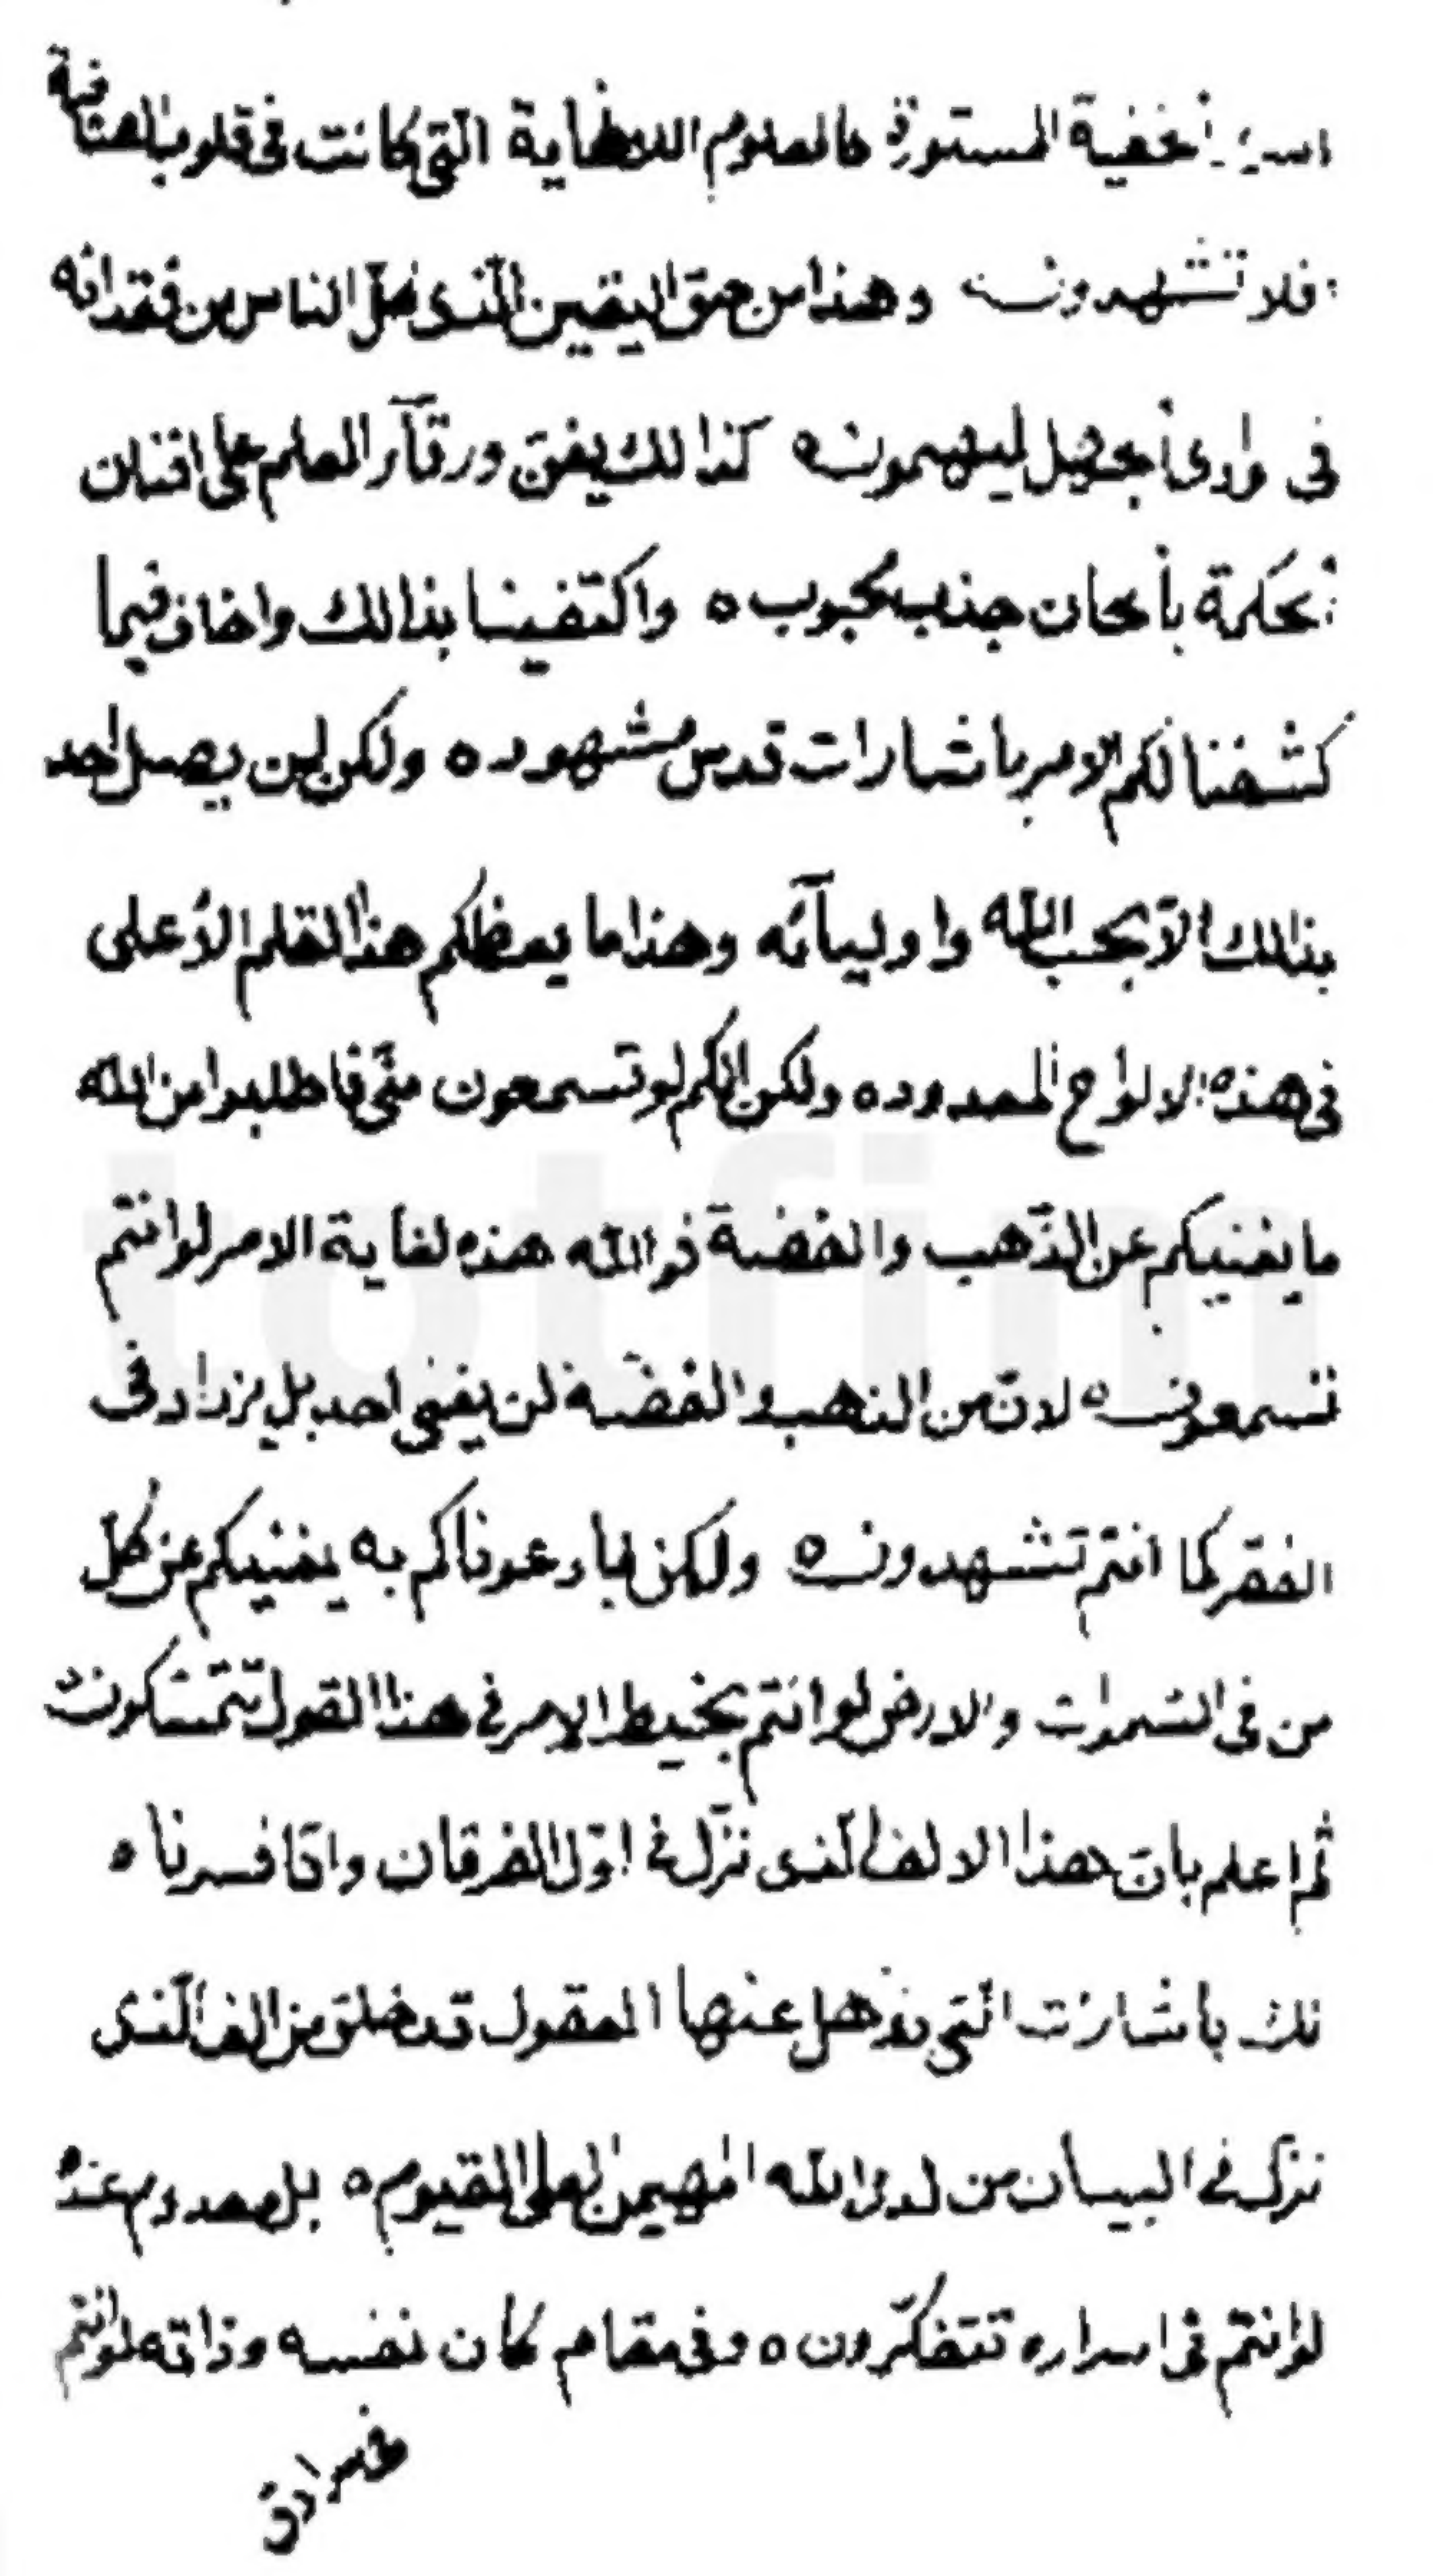 الخفية المستورة كالعلوم اللانهاية التي كانت في قلوب الصافية
فلا تشهدون وهذا من حق اليقين الذى ضل الناس من فقدانه
في وادى الجهل ليهيمون ه كذالك يغنّ ورقآء العلم على افنان
الحكمة بالحان جذب محبوب ه واكتفينا بذالك فيما
كشفنا لكم الامر باشارات قدس مشهود ه ولكن لن يصل احد
بذالك الّا بحب الله واوليآئه وهذا ما يعظكم هذا القلم الأعلى
في هذه الالواح المعدوده ولكن انكم لو تسمعون منّي فاطلبوا من الله
ما يغنيكم عن الذّهب والفضة فوالله هذه لغاية الامر لو انتم
تسمعون ه لانّ من الذهب والفضّة لن يغنى احد بل يزداد في
الفقر كما انتم تشهدون ه ولكن لما دعوناكم به يغنيكم عن كل
من في السّموات والارض لو انتم بخيط الامر في هذا القول تتمسّكون
ثم اعلم بانّ هذا الالف الّذى نزّل في اوّل الفرقان وانّا فسرناه
لك باشارات الّتي يذهل عنها العقول قد خلق من الف الّذى
نزّل في البيان من لدى الله المهيمن العلى القيوم ه بل معدوم عنده
لو انتم في اسراره تتفكّرون ه وفي مقام كان نفسه وذاته لو انتم